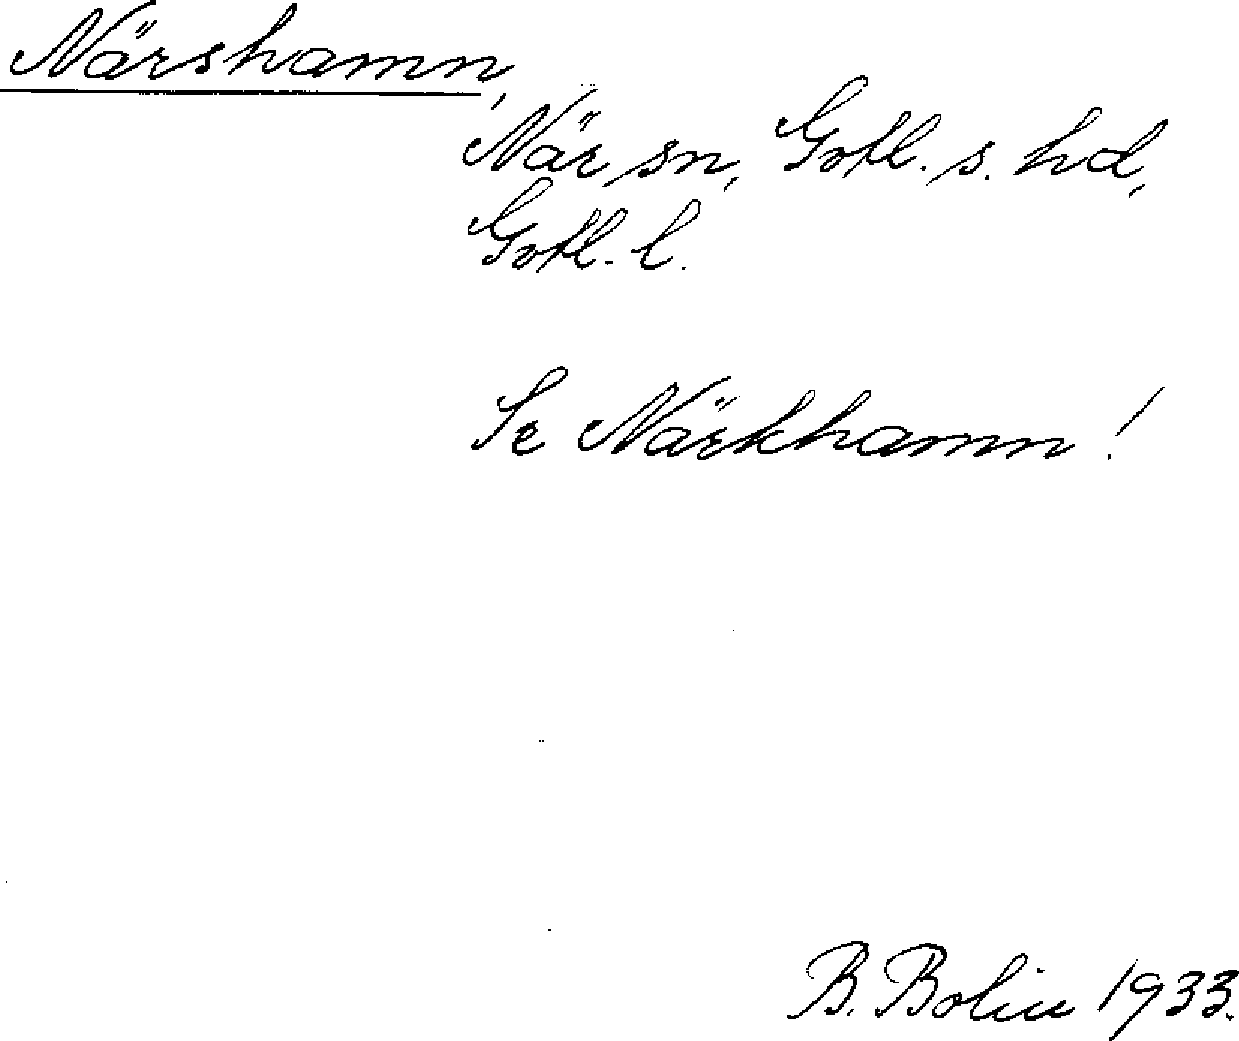 Närshamn,
När sn, Gotl. s. hd,
Gotl. l.
Se Närkhamn!
B. Bolin 1933.